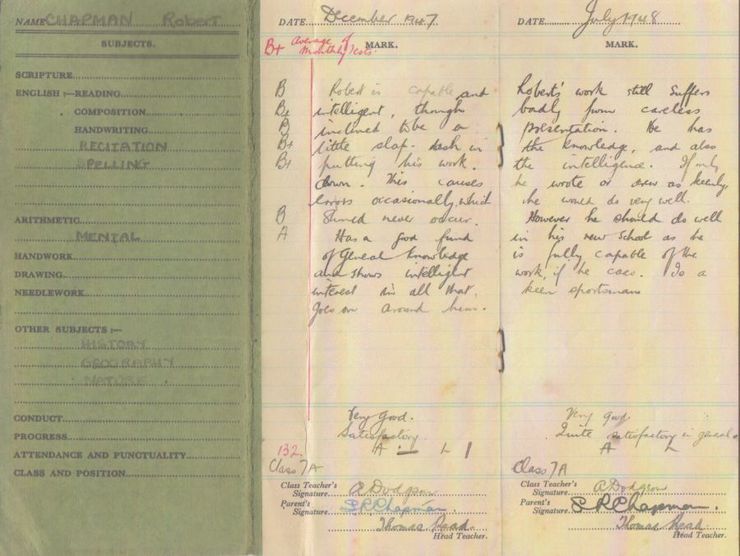 NAME CHAPMAN Robert
SUBJECTS.
SCRIPTURE
ENGLISH :—READING
COMPOSITION
HANDWRITING
RECITATION
SPELLING
ARITHMETIC
MENTAL
HANDWORK
DRAWING
NEEDLEWORK
OTHER SUBJECTS :—
HISTORY
GEOGRAPHY
NATURE
CONDUCT
PROGRESS
ATTENDANCE AND PUNCTUALITY
CLASS AND POSITION
DATE December 1947.
B+ Average of
Monthly Tests.
MARK.
B Robert is capable and
B+ intelligent, though
B inclined to be a
B+ little slap-dash in
B+ putting his work
down. This causes
errors occasionally, which
B should never occur.
A Has a good fund
of General knowledge
and shows intelligent
interest in all that
goes on around him.
Very good.
Satisfactory
132
A L 1
Class 7A
Class Teacher's
Signature A Dodgson
Parent's
Signature SRChapman
Thomas Head
Head Teacher.
DATE July 1948
MARK.
Robert's work still suffers
badly from careless
presentation. He has
the knowledge, and also
the intelligence. If only
he wrote or drew as keenly,
he would do very well.
However he should do well
in his new School as he
is fully capable of the
work, if he cares. Is a
keen sportsman
Very good
Quite satisfactory in general
A L
Class 7A
Class Teacher's
Signature A Dodgson
Parent's
Signature SRChapman.
Thomas Head
Head Teacher.